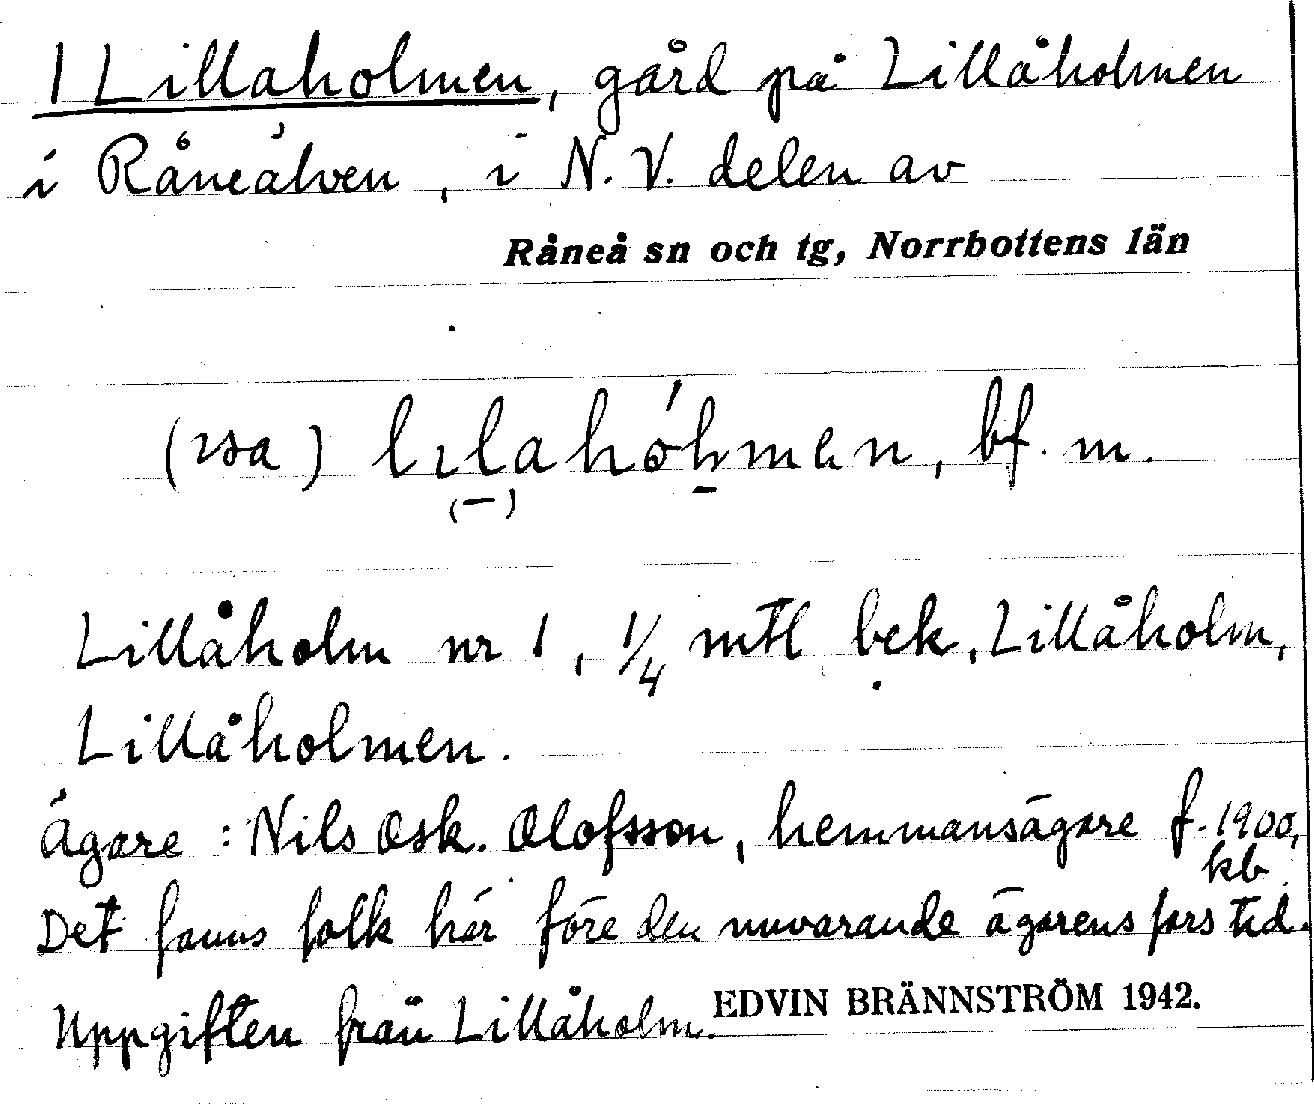 1 Lillaholmen, gård på Lillåholmen
i Råneälven, i N.V. delen av
Råneå sn och tg, Norrbottens län
(ısa) lılahóhmen, bf. m.
Lillåholm nr 1, 1/4 mtl bek. Lillåholm,
Lillåholmen.
Ägare: Nils Osk. Olofsson, hemmansägare f. 1900,
kb.
Det fanns folk här före den nuvarande ägarens fars tid.
Uppgiften från Lillåholm.
EDVIN BRÄNNSTRÖM 1942.